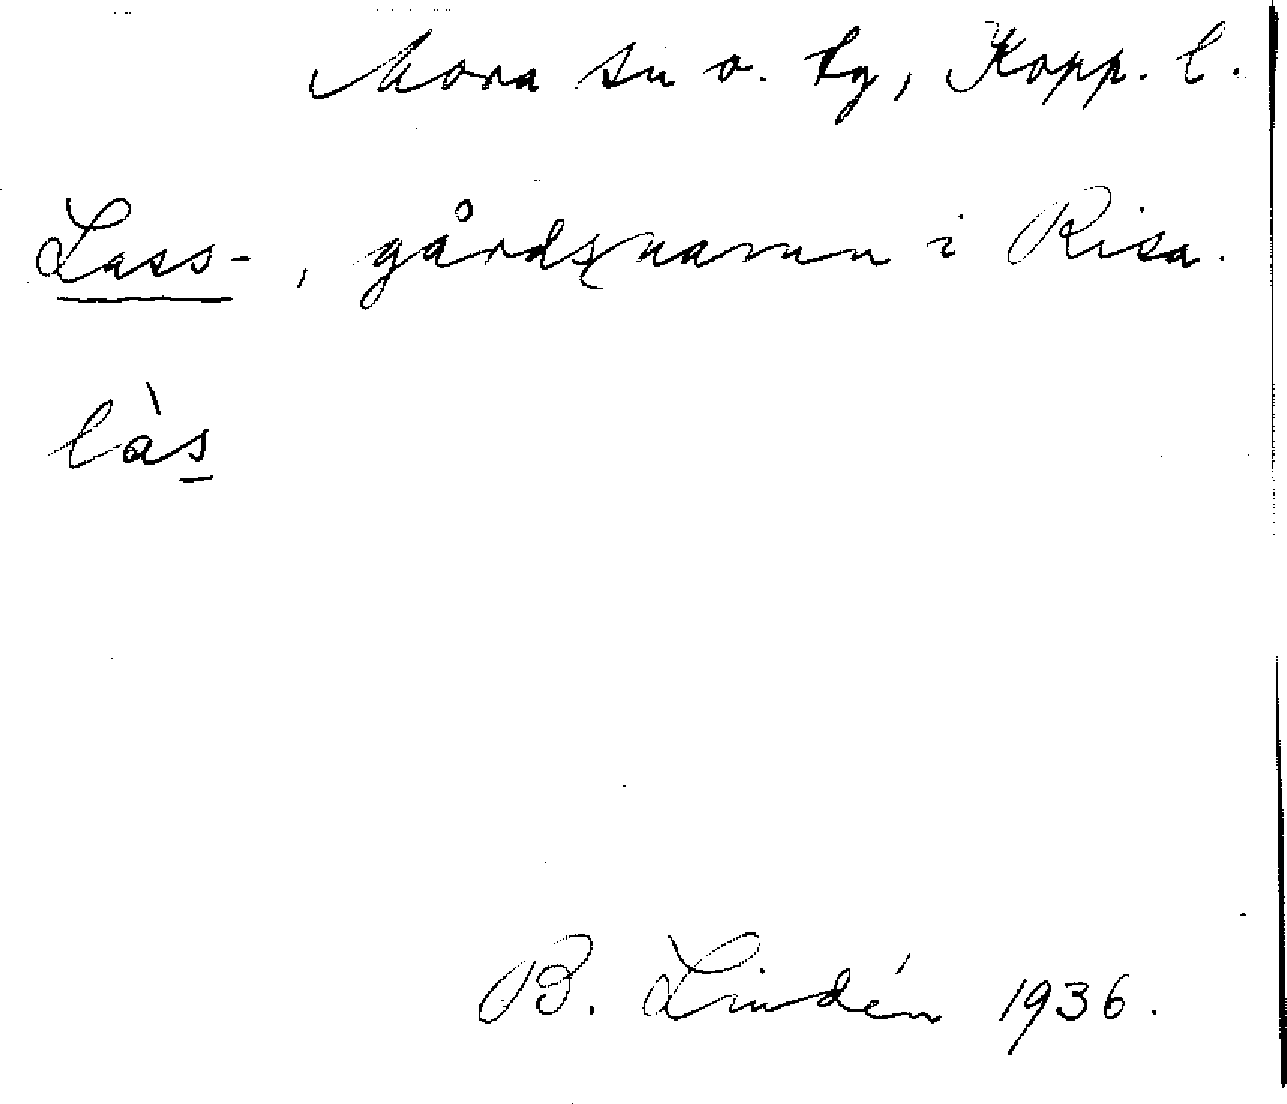 Mora sn o. tg, Kopp. l.
Lass-, gårdsnamn i Risa.
làs
B. Lindén 1936.